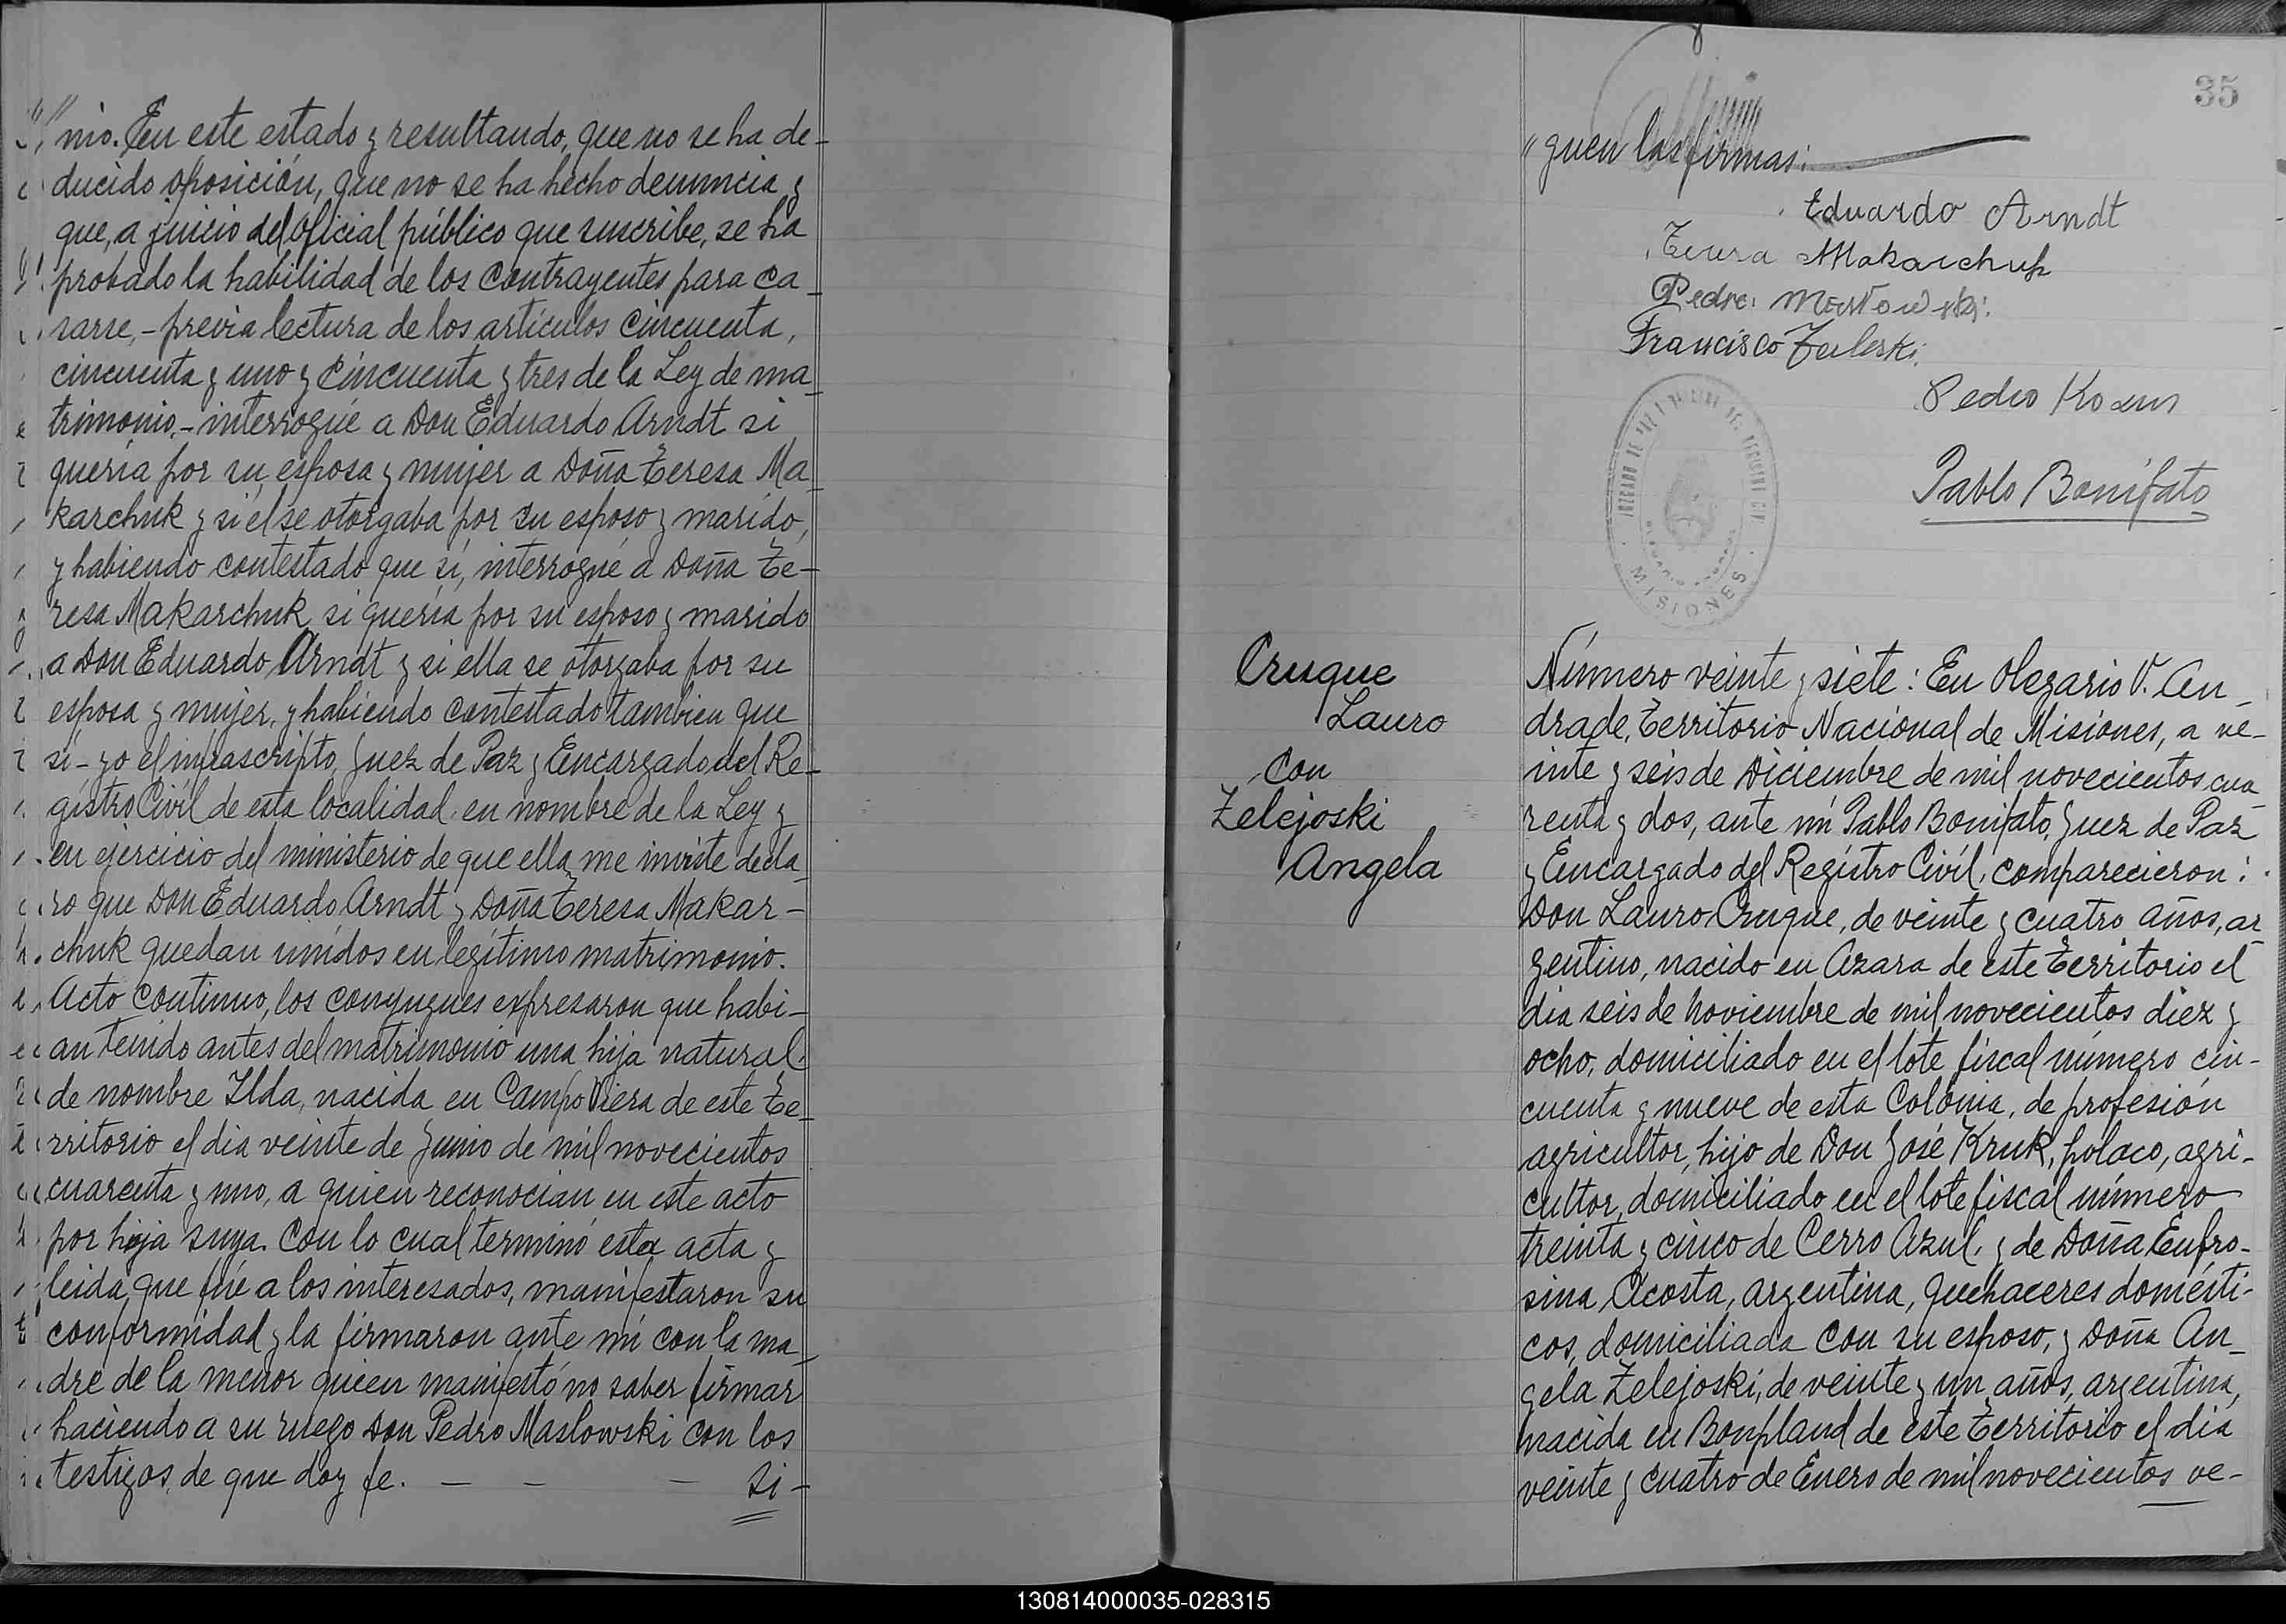 nio. En este estado y resultando, que no se ha de-
ducido oposición, que no se ha hecho denuncia y
que, a juicio del oficial público que suscribe, se ha
probado la habilidad de los contrayentes para ca-
sarse,- previa lectura de los artículos cincuenta,
cincuenta y uno y cincuenta y tres de la Ley de ma-
trimonio,- interrogué a Don Eduardo Arndt si
quería por su esposa y mujer a Doña Teresa Ma-
karchuk y si él se otorgaba por su esposo y marido,
y habiendo contestado que sí, interrogué a Doña Te-
resa Makarchuk si quería por su esposo y marido
a Don Eduardo Arndt y si ella se otorgaba por su
esposa y mujer, y habiendo contestado tambien que
si- yo el infrascripto, Juez de Paz y Encargado del Re-
gistro Civil de esta localidad en nombre de la Ley y
en ejercicio del ministerio de que ella me inviste decla-
ro que Don Eduardo Arndt y Doña Teresa Makar-
chuk quedan unidos en legítimo matrimonio.
Acto continuo, los conyugues expresaron que habi-
an tenido antes del matrimonio una hija natural
de nombre Ilda, nacida en Campo Viera de este Te-
rritorio el dia veinte de Junio de mil novecientos
cuarenta y uno, a quien reconocian en este acto
por hija suya. Con lo cual terminó esta acta y
leida que fué a los interesados, manifestaron su
conformidad y la firmaron ante mi con la ma-
dre de la menor quien manifestó no saber firmar
haciendo a su ruego Don Pedro Maslowski con los
testigos, de que doy fe. - - - si-
35
"guen las firmas:
Eduardo Arndt
Makarchuk
Pedro
Francisco
Pedro
Pablo Bonifato
MISIONES
Cruque
Lauro
Con
Zelejoski
Angela
Número veinte y siete: En Olegario V. An-
drade, Territorio Nacional de Misiones, a ve-
inte y seis de Diciembre de mil novecientos cua-
renta y dos, ante mi Pablo Bonifato, Juez de Paz
y Encargado del Registro Civil, comparecieron:
Don Lauro Cruque, de veinte y cuatro años, ar-
gentino, nacido en Azara de este Territorio el
dia seis de noviembre de mil novecientos diez y
ocho, domiciliado en el lote fiscal número cin-
cuenta y nueve de esta Colonia, de profesión
agricultor, hijo de Don José Kruk, polaco, agri-
cultor, domiciliado en el lote fiscal número
treinta y cinco de Cerro Azul, y de Doña Eufro-
sina Acosta, argentina, quehaceres domésti-
cos, domiciliada con su esposo, y Doña An-
gela Zelejoski, de veinte y un años, argentina,
nacida en Bonpland de este Territorio el dia
veinte y cuatro de Enero de mil novecientos ve-
130814000035-028315